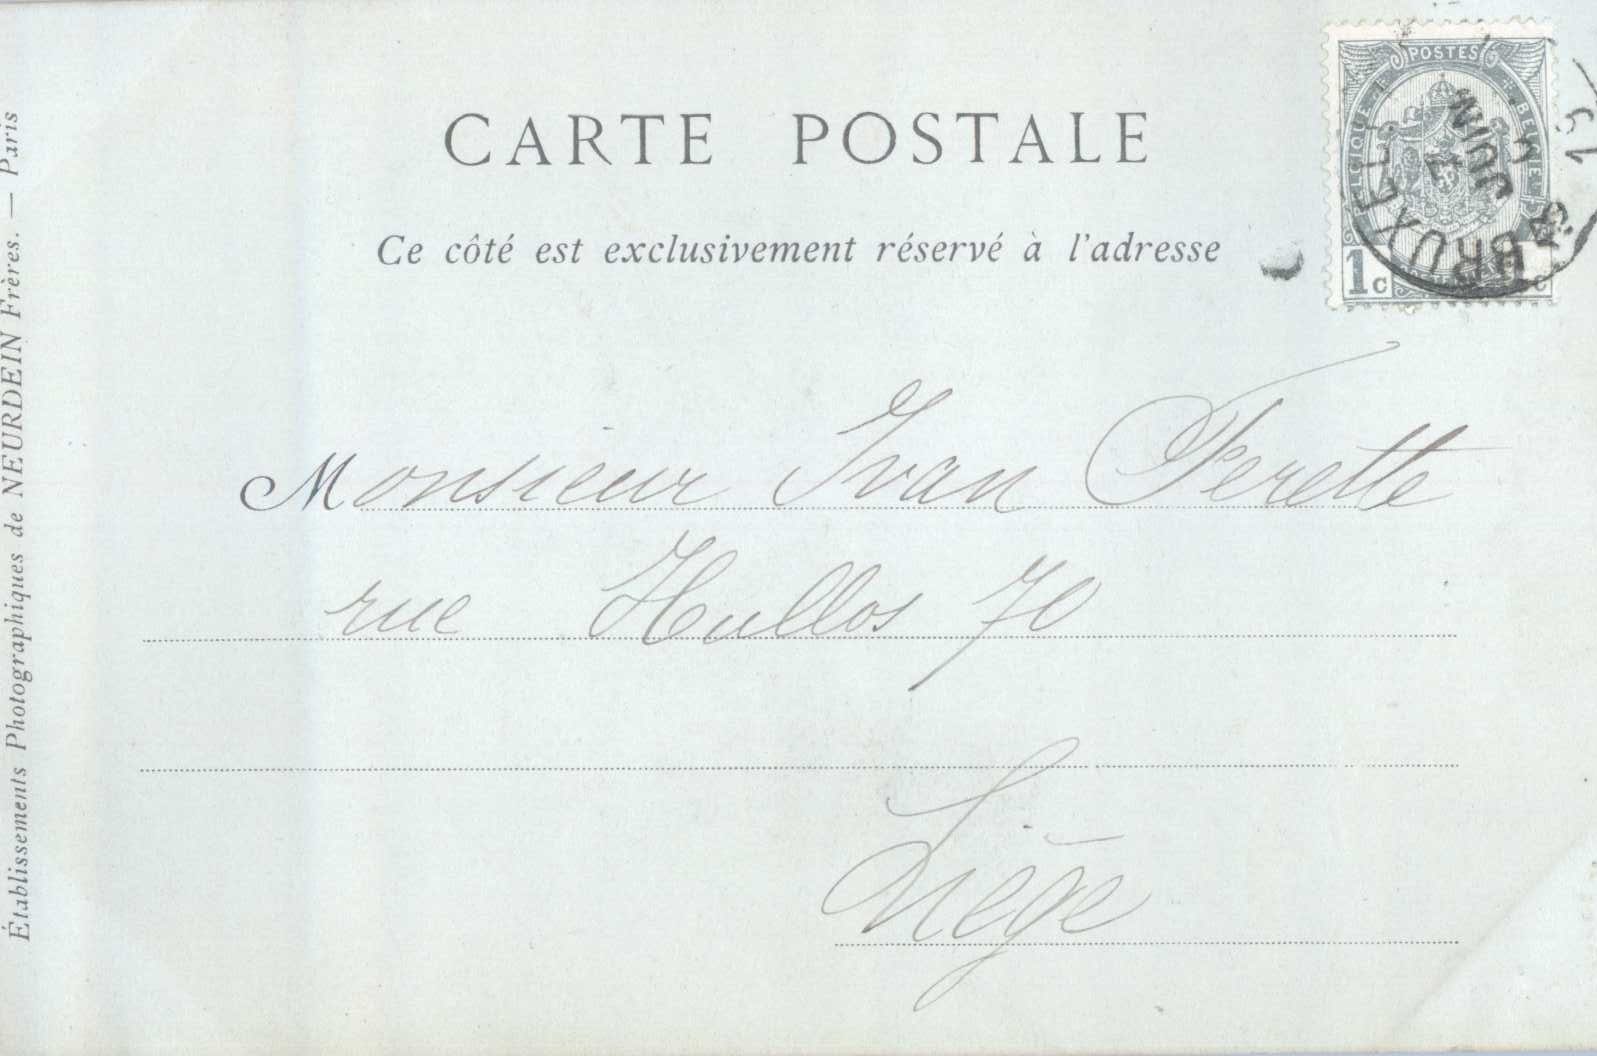 CARTE POSTALE
Ce côté est exclusivement réservé à l'adresse
POSTES
BELGIQUE
BELGIE
1c
BRUXEL
JUIN
19
Monsieur Ivan Ferette
rue Hullos 70
Liège
Établissements Photographiques de NEURDEIN Frères. — Paris